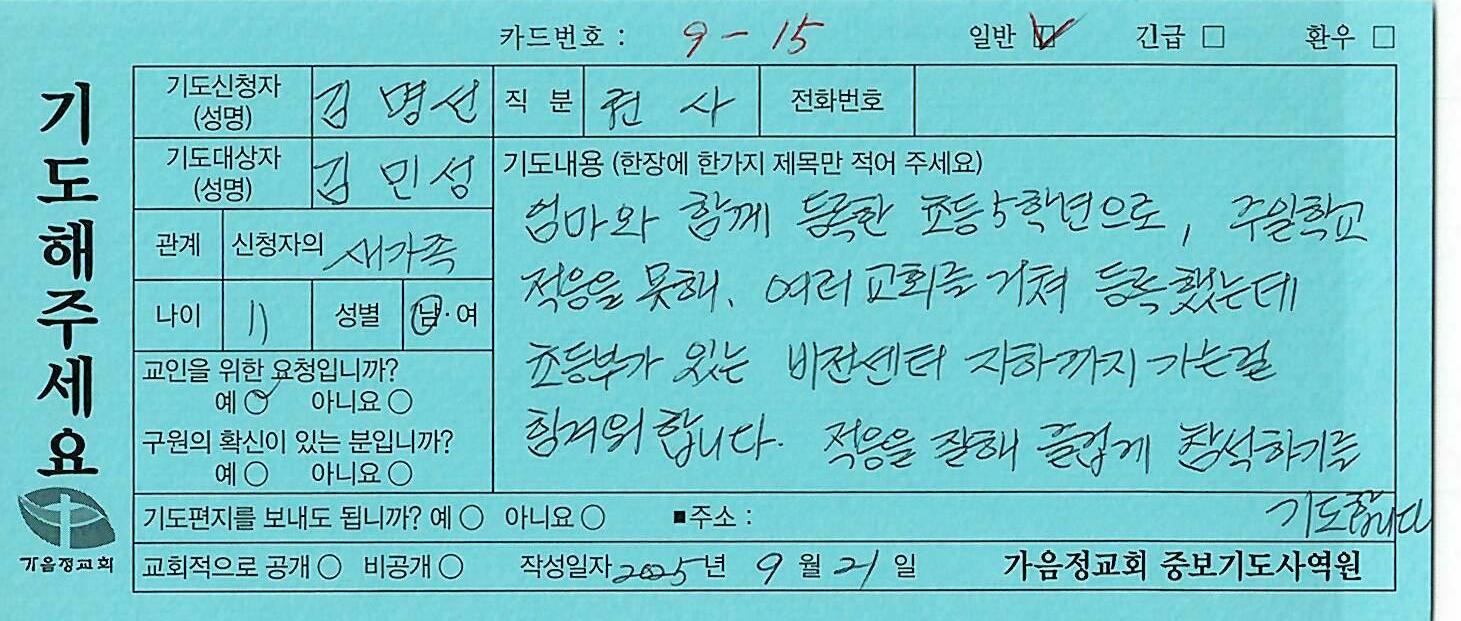 카드번호 : 9-15 일반 ☑ 긴급 □ 환우 □
기도해주세요
가음정교회
기도신청자 (성명) 김명선 직 분 권사 전화번호
기도대상자 (성명) 김민성
관계 신청자의 새가족
나이 11 성별 남·여
교인을 위한 요청입니까?
예 ○ 아니요 ○
구원의 확신이 있는 분입니까?
예 ○ 아니요 ○
기도내용 (한장에 한가지 제목만 적어 주세요)
엄마와 함께 등록한 초등5학년으로, 주일학교
적응을 못해. 여러 교회를 거쳐 등록했는데
초등부가 있는 비전센터 지하까지 가는걸
힘겨워 합니다. 적응을 잘해 즐겁게 참석하기를
기도합니다
기도편지를 보내도 됩니까? 예 ○ 아니요 ○ ■주소 :
교회적으로 공개 ○ 비공개 ○ 작성일자 2025년 9월 21일 가음정교회 중보기도사역원